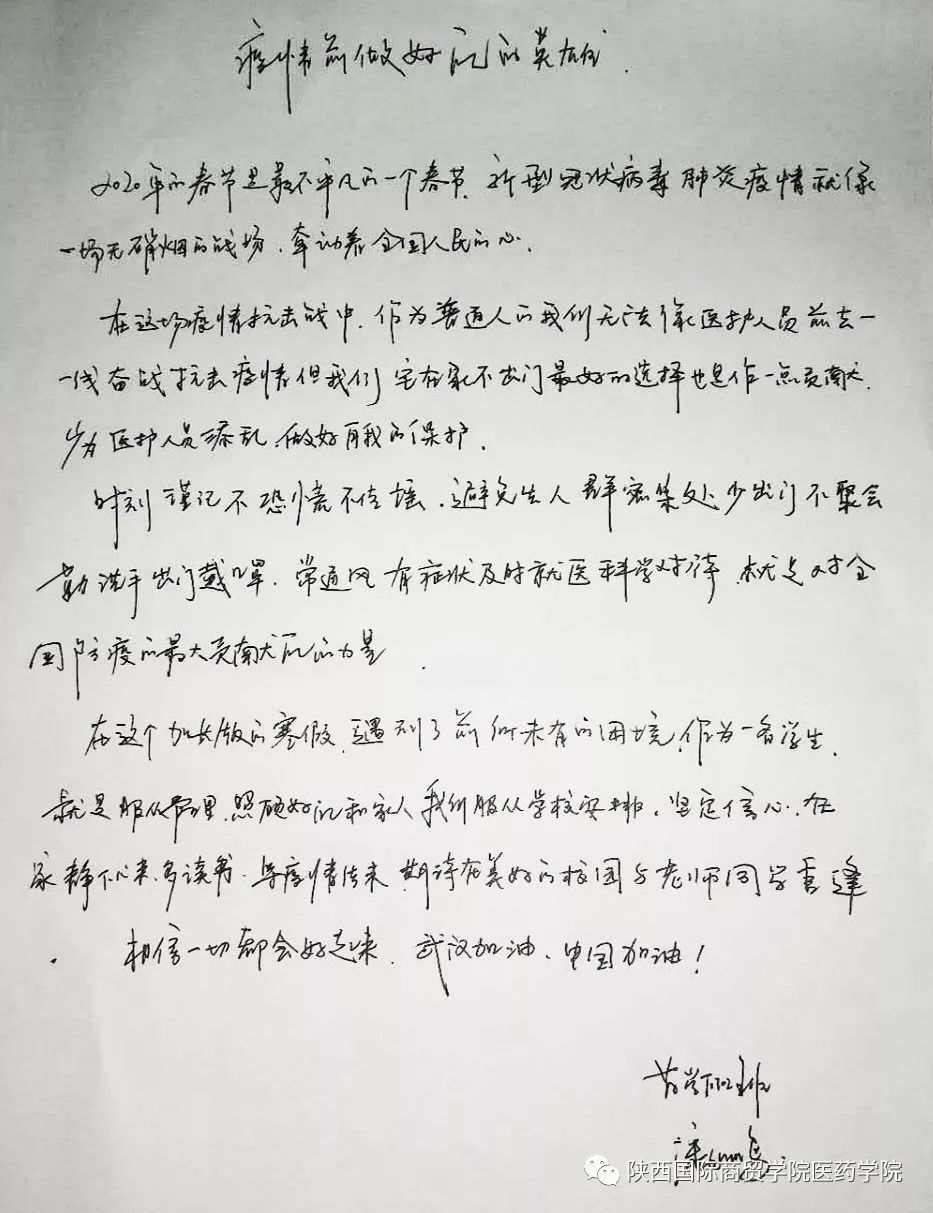 疫情前做好自己的英雄.
2020年的春节是最不平凡的一个春节.新型冠状病毒肺炎疫情就像
一场无硝烟的战场.牵动着全国人民的心.
在这场疫情抗击战中.作为普通人的我们无法像医护人员前去一
一线奋战抗击疫情但我们宅在家不出门最好的选择也是作一点贡献.
少为医护人员添乱.做好自我的保护.
时刻谨记不恐慌不传谣.避免去人群密集处.少出门不聚会
勤洗手出门戴口罩.常通风有症状及时就医科学对待.就是对全
国防疫的最大贡献自己的力量.
在这个加长版的寒假.遇到了前所未有的困境.作为一名学生.
就是服从管理.照顾好自己和家人我们服从学校安排.坚定信心.在
家静下心来.多读书.等疫情结束期待在美好的校园与老师同学重逢
.相信一切都会好起来.武汉加油.中国加油!
药学
陕西国际商贸学院医药学院